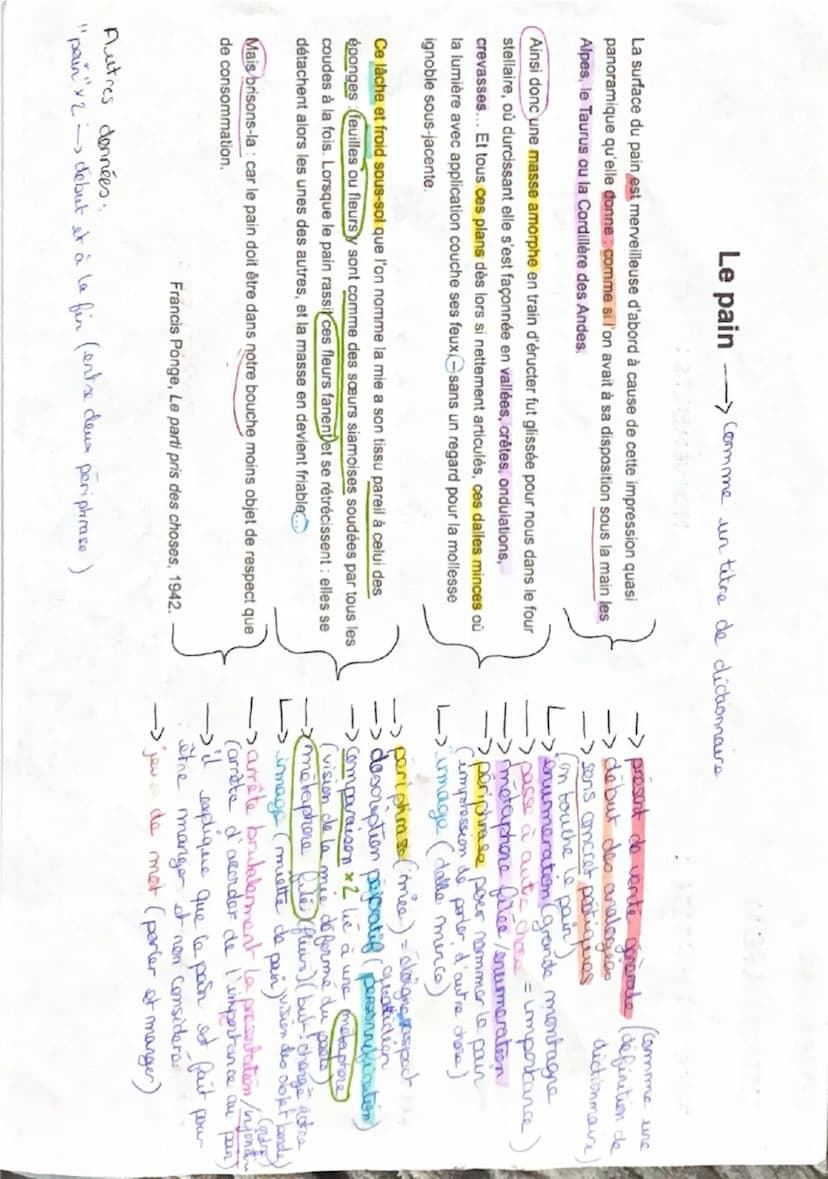 Le pain → comme un titre de dictionnaire
La surface du pain est merveilleuse d'abord à cause de cette impression quasi
panoramique qu'elle donne : comme si l'on avait à sa disposition sous la main les
Alpes, le Taurus ou la Cordillère des Andes.
Ainsi donc une masse amorphe en train d'éructer fut glissée pour nous dans le four
stellaire, où durcissant elle s'est façonnée en vallées, crêtes, ondulations,
crevasses... Et tous ces plans dès lors si nettement articulés, ces dalles minces où
la lumière avec application couche ses feux, - sans un regard pour la mollesse
ignoble sous-jacente.
Ce lâche et froid sous-sol que l'on nomme la mie a son tissu pareil à celui des
éponges : feuilles ou fleurs y sont comme des sœurs siamoises soudées par tous les
coudes à la fois. Lorsque le pain rassit ces fleurs fanent et se rétrécissent : elles se
détachent alors les unes des autres, et la masse en devient friable...
Mais brisons-la : car le pain doit être dans notre bouche moins objet de respect que
de consommation.
Francis Ponge, Le parti pris des choses, 1942.
→ présent de vérité générale (comme une
définition de
dictionnaire)
→ début des analogies
→ sens concret pratiques
(on touche le pain)
↳ énumeration (grande montagne
→ passe à autre chose = importance)
→ métaphore filée / énumeration
→ périphrase pour nommer le pain
(impression de parler d'autre chose)
↳ image (dalle mince)
→ périphrase (mie) =
quotidien
→ description péjoratif (personnification)
→ comparaison x2 lié à une métaphore
(vision de la mie déformé du poète)
→ métaphore filé (fleurs) (but : change notre
vision des objet banale)
↳ image (miette de pain)
→ arrête brutalement la présentation / injonction
(ordre)
(arrête d'accorder de l'importance au pain)
→ il explique que le pain est fait pour
être manger et non considérer
→ jeu de mot (parler et manger)
Autres données :
"pain" x2 → début et à la fin (entre deux périphrase)